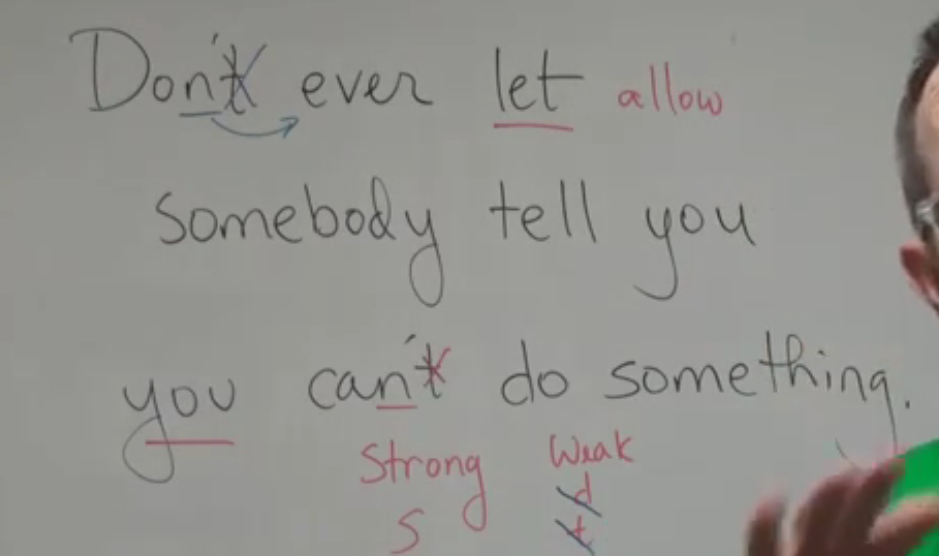 Don't ever let allow
somebody tell you
you can't do something.
Strong Weak
S d
t